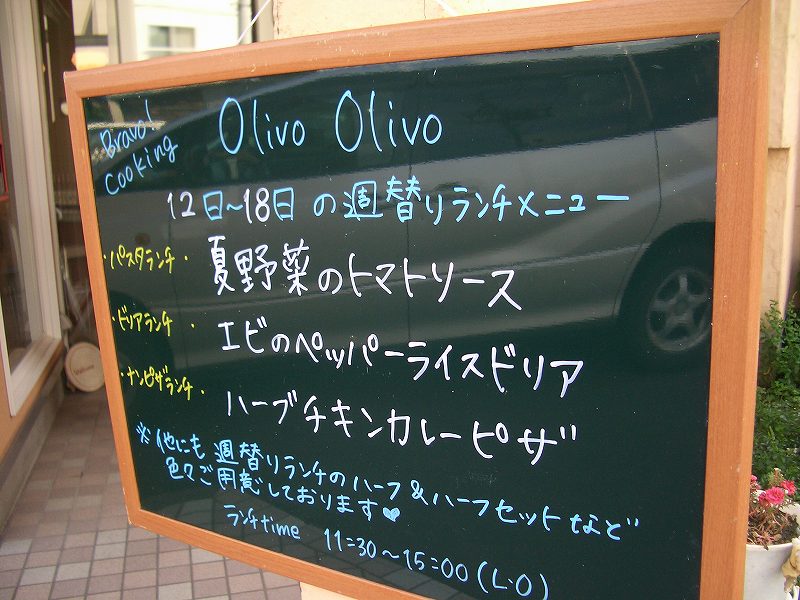 Bravo!
Cooking
Olivo Olivo
12日~18日 の週替りランチメニュー
・パスタランチ・
夏野菜のトマトソース
・ドリアランチ・
エビのペッパーライスドリア
・ナンピザランチ・
ハーブチキンカレーピザ
※他にも週替りランチのハーフ&ハーフセットなど
色々ご用意しております♥
ランチtime 11:30~15:00(L・O)